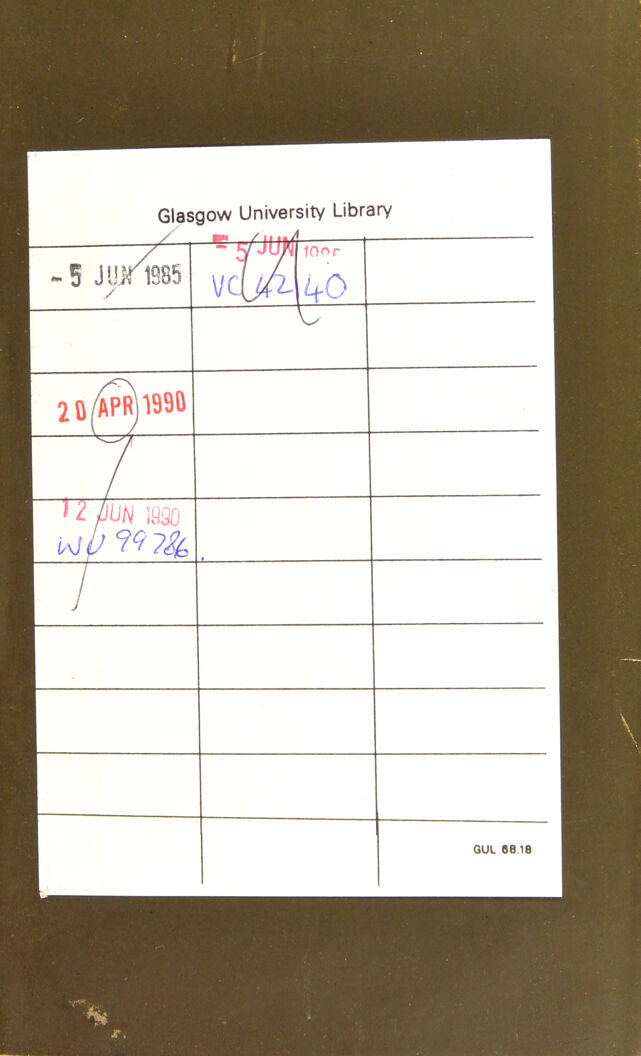 Glasgow University Library
- 5 JUN 1985
= 5 JUN
VC 42140
20 APR 1990
12 JUN 1990
WU 99786.
GUL 68.18